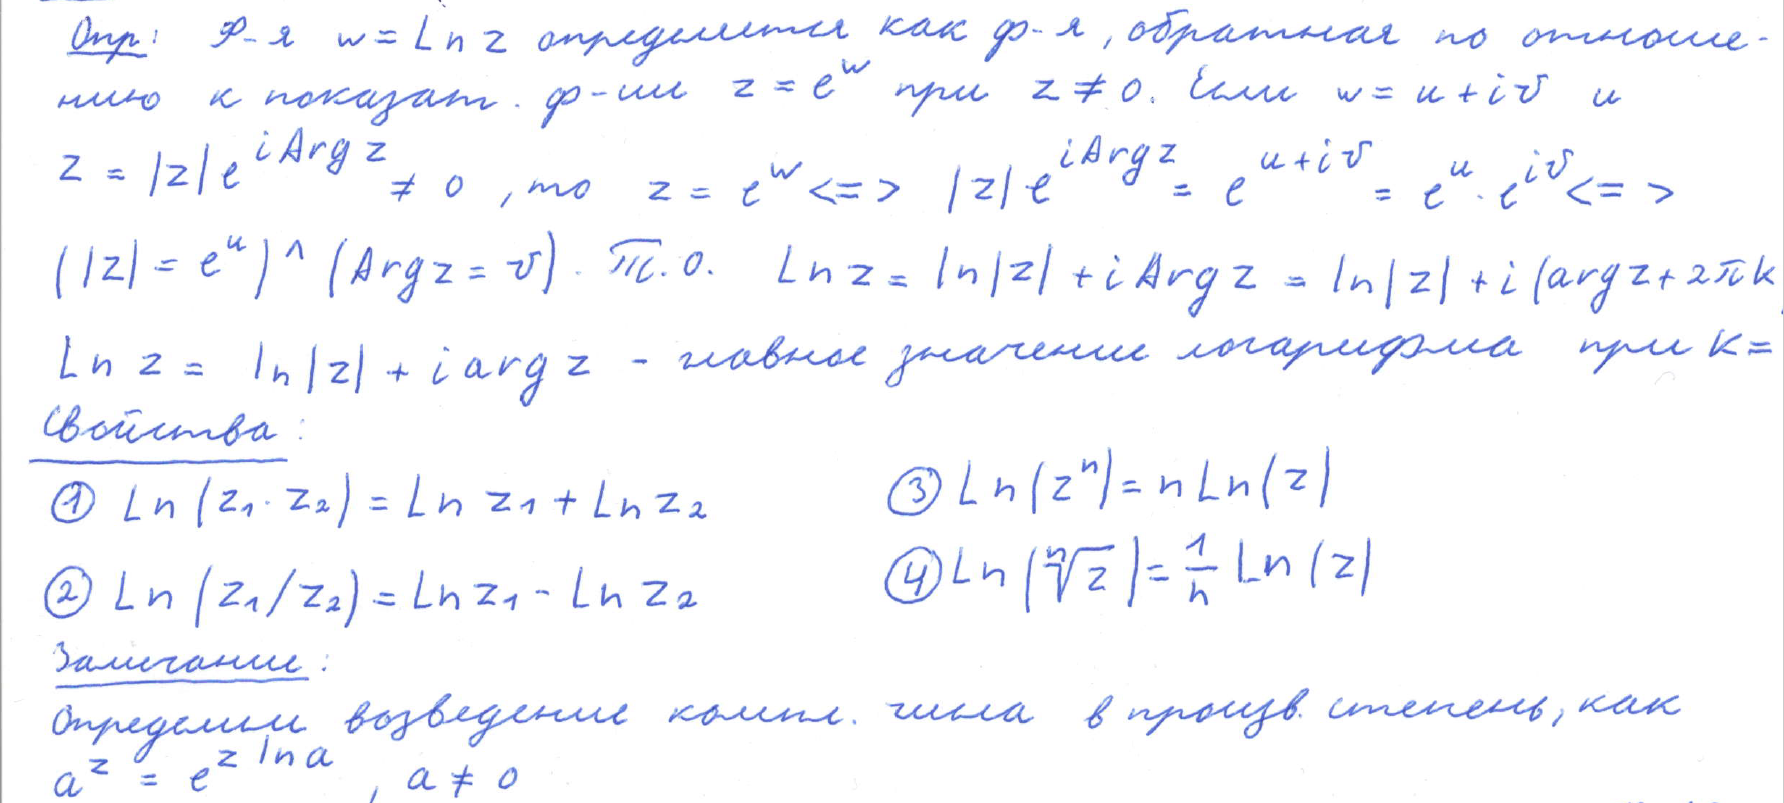 Опр: Ф-я w = Ln z определяется как ф-я, обратная по отноше-
нию к показат. ф-ии z = e^w при z ≠ 0. Если w = u + iv и
z = |z| e^{i Arg z} ≠ 0, то z = e^w <=> |z| e^{i Arg z} = e^{u+iv} = e^u · e^{iv} <=>
(|z| = e^u) ^ (Arg z = v). Т.о. Ln z = ln|z| + i Arg z = ln|z| + i (arg z + 2πk
Ln z = ln|z| + i arg z - главное значение логарифма при k =
Свойства:
① Ln (z₁ · z₂) = Ln z₁ + Ln z₂
③ Ln (zⁿ) = n Ln (z)
② Ln (z₁/z₂) = Ln z₁ - Ln z₂
④ Ln (ⁿ√z) = 1/n Ln (z)
Замечание:
Определим возведение компл. числа в произв. степень, как
a^z = e^{z ln a}, a ≠ 0